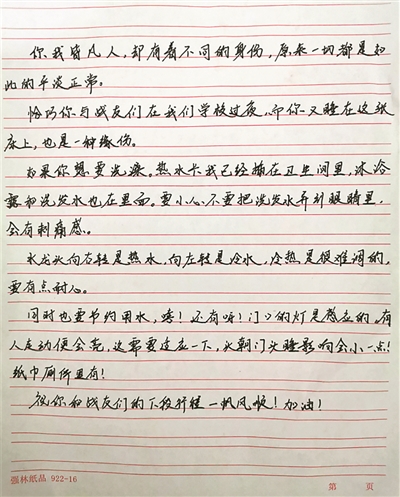 你我皆凡人，却有着不同的身份，原来一切都是如
此的平淡正常。
恰巧你与战友们在我们学校过夜，而你又睡在这张
床上，也是一种缘份。
如果你想要洗澡。热水卡我已经插在卫生间里，沐浴
露和洗发水也在里面。要小心不要把洗发水弄到眼睛里，
会有刺痛感。
水龙头向右转是热水，向左转是冷水，冷热是很难调的，
要有点耐心。
同时也要节约用水，嘻！还有呀！门口的灯是感应的，有
人走动便会亮，这需要适应一下，头朝门头睡影响会小一点！
纸巾厕所里有！
祝你和战友们的下段行程一帆风顺！加油！
强林纸品 922-16
第 页